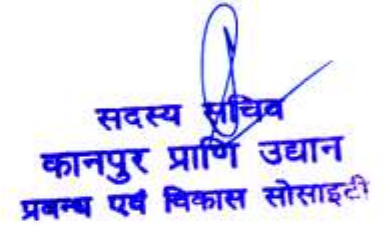 सदस्य सचिव
कानपुर प्राणि उद्यान
प्रबन्ध एवं विकास सोसाइटी